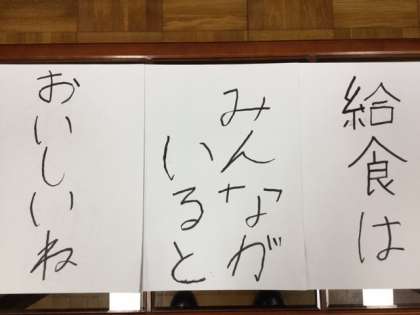 給食は
みんなが
いると
おいしいね